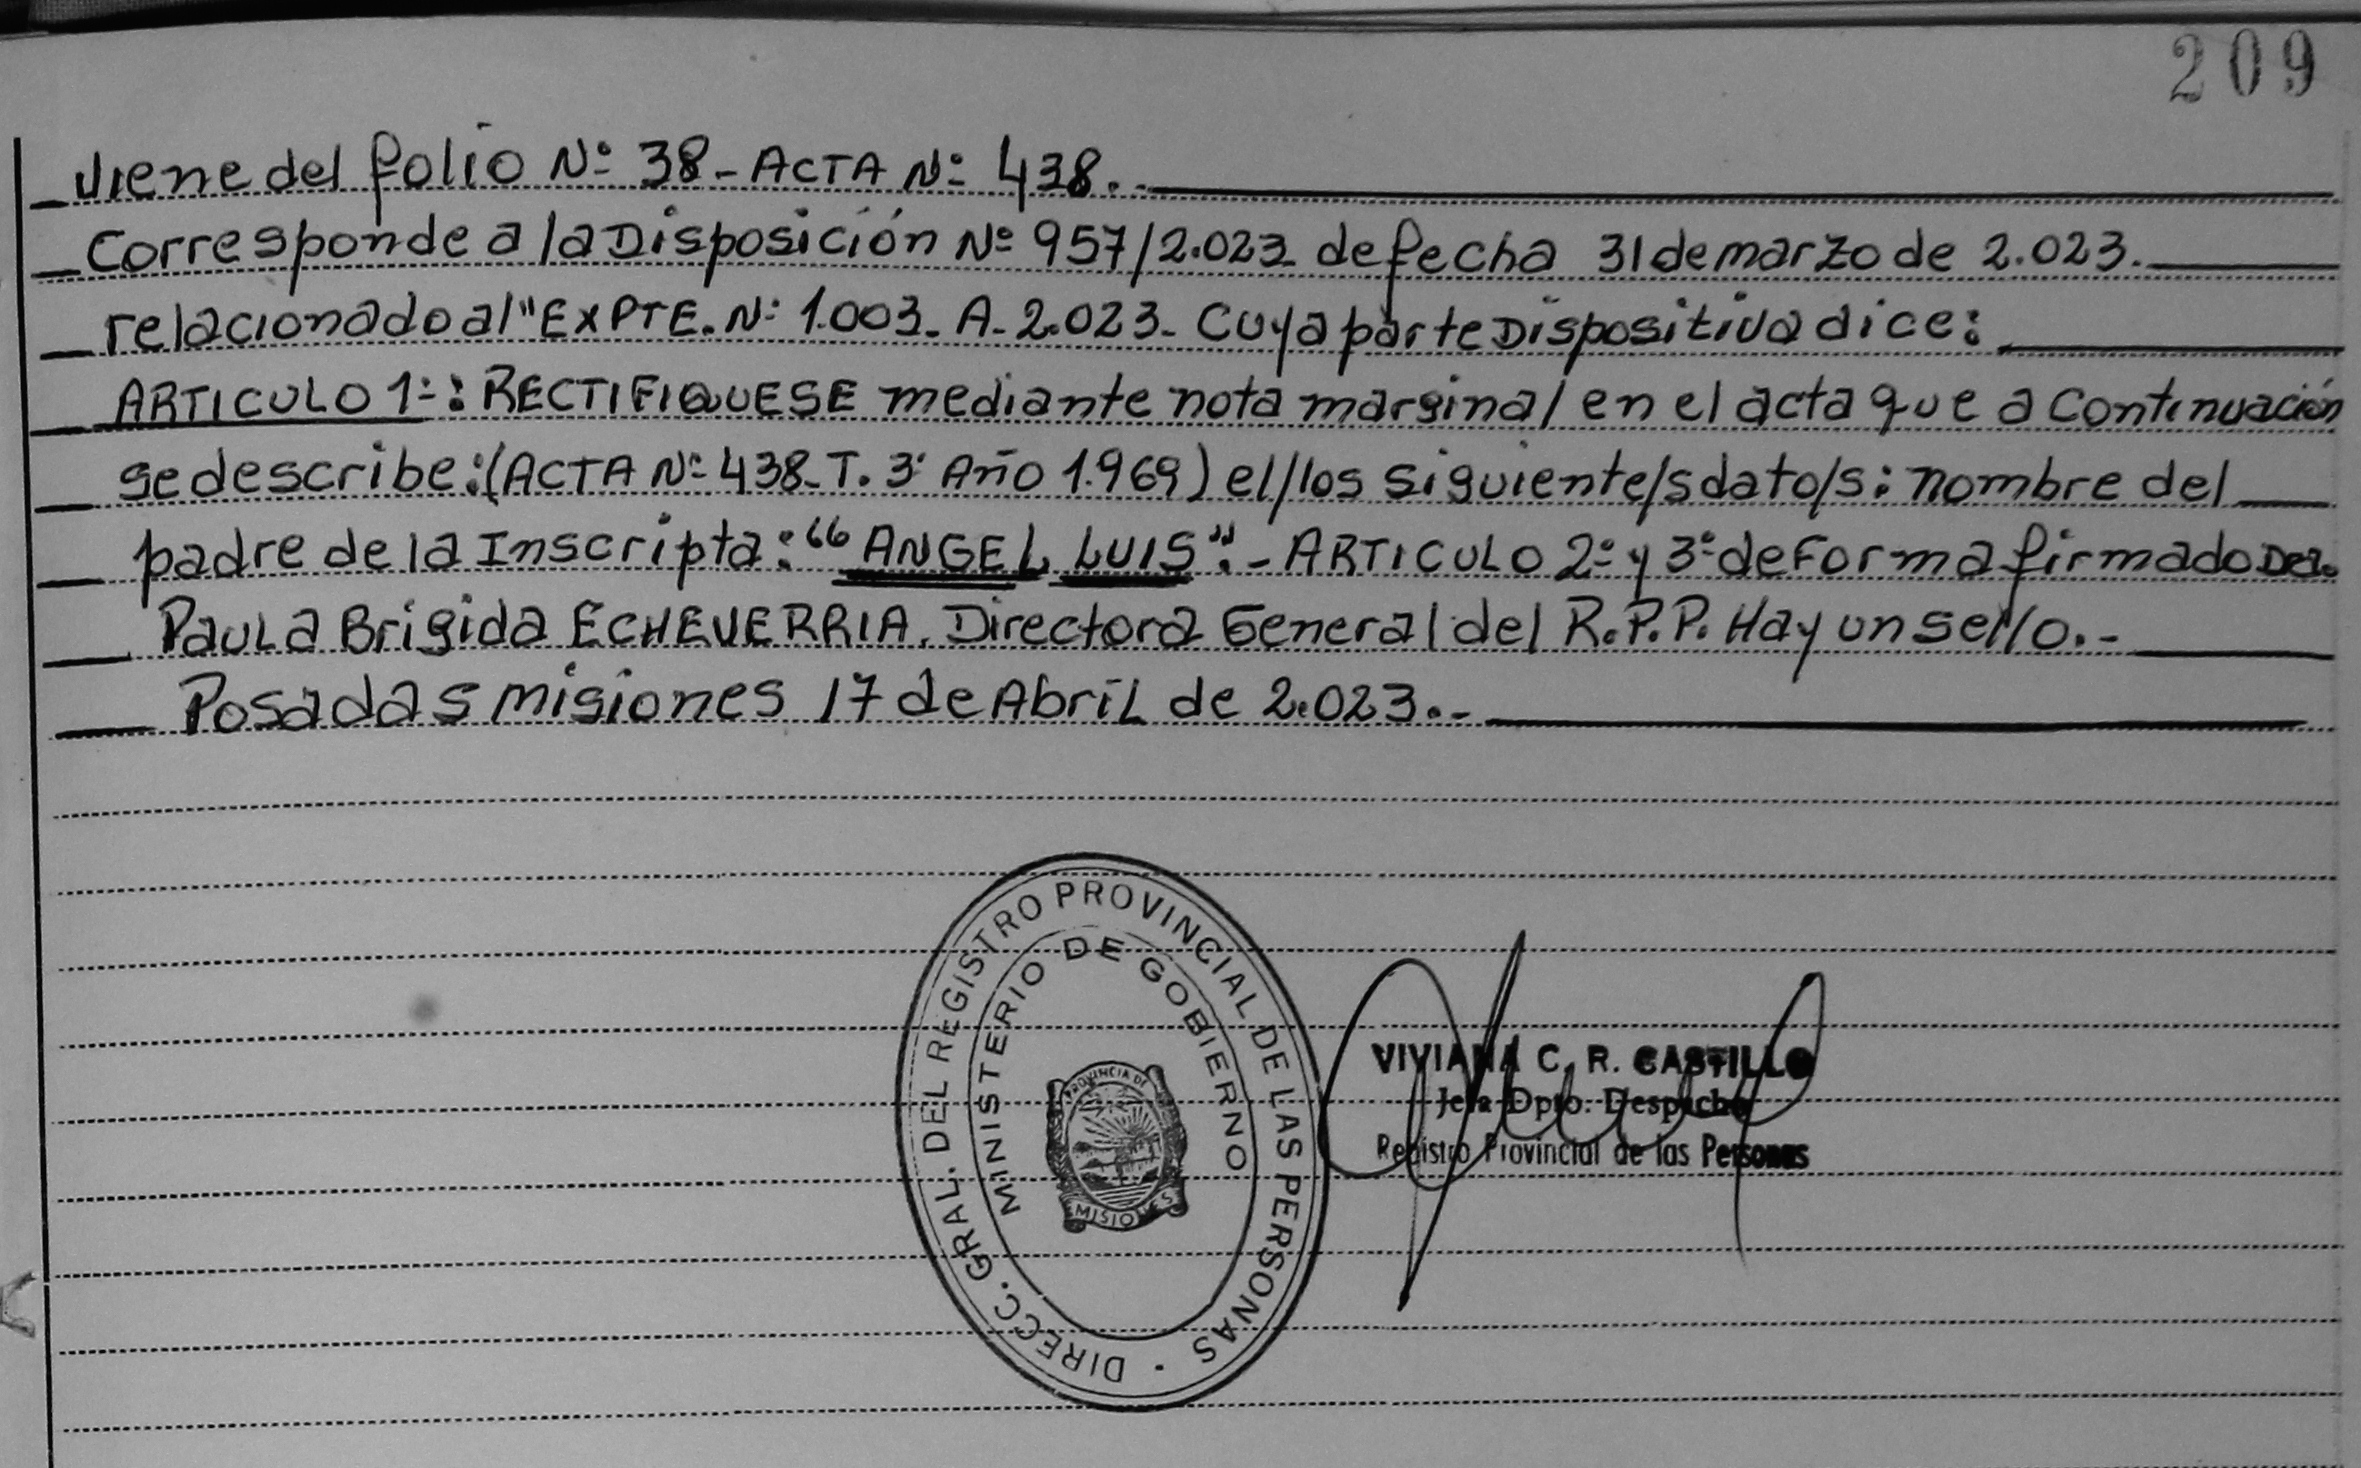 209
viene del folio Nº 38 - ACTA Nº 438.-
Corresponde a la Disposición Nº 957/2.023 de fecha 31 de marzo de 2.023.
relacionado al "EXPTE. Nº 1.003. A. 2.023. Cuya parte Dispositiva dice:
ARTICULO 1º: RECTIFIQUESE mediante nota marginal en el acta que a Continuación
se describe: (ACTA Nº 438 - T. 3º Año 1.969) el/los siguiente/s dato/s: nombre del
padre de la Inscripta: "ANGEL LUIS".- ARTICULO 2º y 3º de Forma firmado Dra.
Paula Brigida ECHEVERRIA. Directora General del R.P.P. Hay un sello.-
Posadas misiones 17 de Abril de 2.023.-
DIRECC. GRAL. DEL REGISTRO PROVINCIAL DE LAS PERSONAS
MINISTERIO DE GOBIERNO
PROVINCIA DE
MISIONES
VIVIANA C. R. CASTILLO
Jefa Dpto. Despacho
Registro Provincial de las Personas